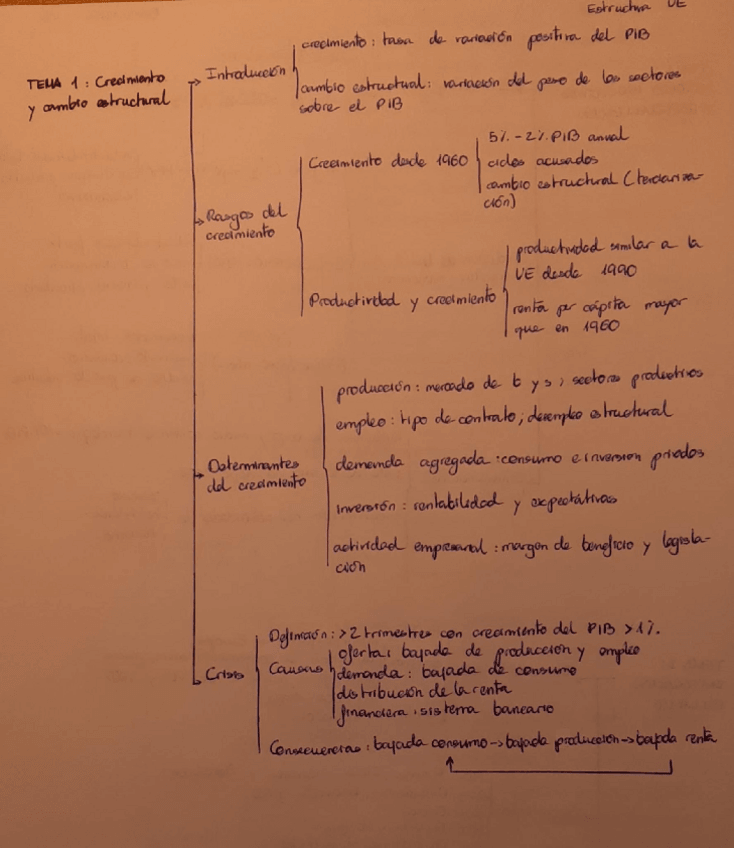 Estructura UE
TEMA 1: Crecimiento
y cambio estructural
Introducción
crecimiento: tasa de variación positiva del PIB
cambio estructural: variación del peso de los sectores
sobre el PIB
Rasgos del
crecimiento
Crecimiento desde 1960
5% - 2% PIB anual
ciclos acusados
cambio estructural (terciariza-
ción)
Productividad y crecimiento
productividad similar a la
UE desde 1990
renta per cápita mayor
que en 1960
Determinantes
del crecimiento
producción: mercado de b y s, sectores productivos
empleo: tipo de contrato; desempleo estructural
demanda agregada: consumo e inversión privados
inversión: rentabilidad y expectativas
actividad empresarial: margen de beneficio y legisla-
ción
Crisis
Definición: >2 trimestres con crecimiento del PIB >1%
Causas
oferta: bajada de producción y empleo
demanda: bajada de consumo
distribución de la renta
financiera: sistema bancario
Consecuencias: bajada consumo → bajada producción → bajada renta